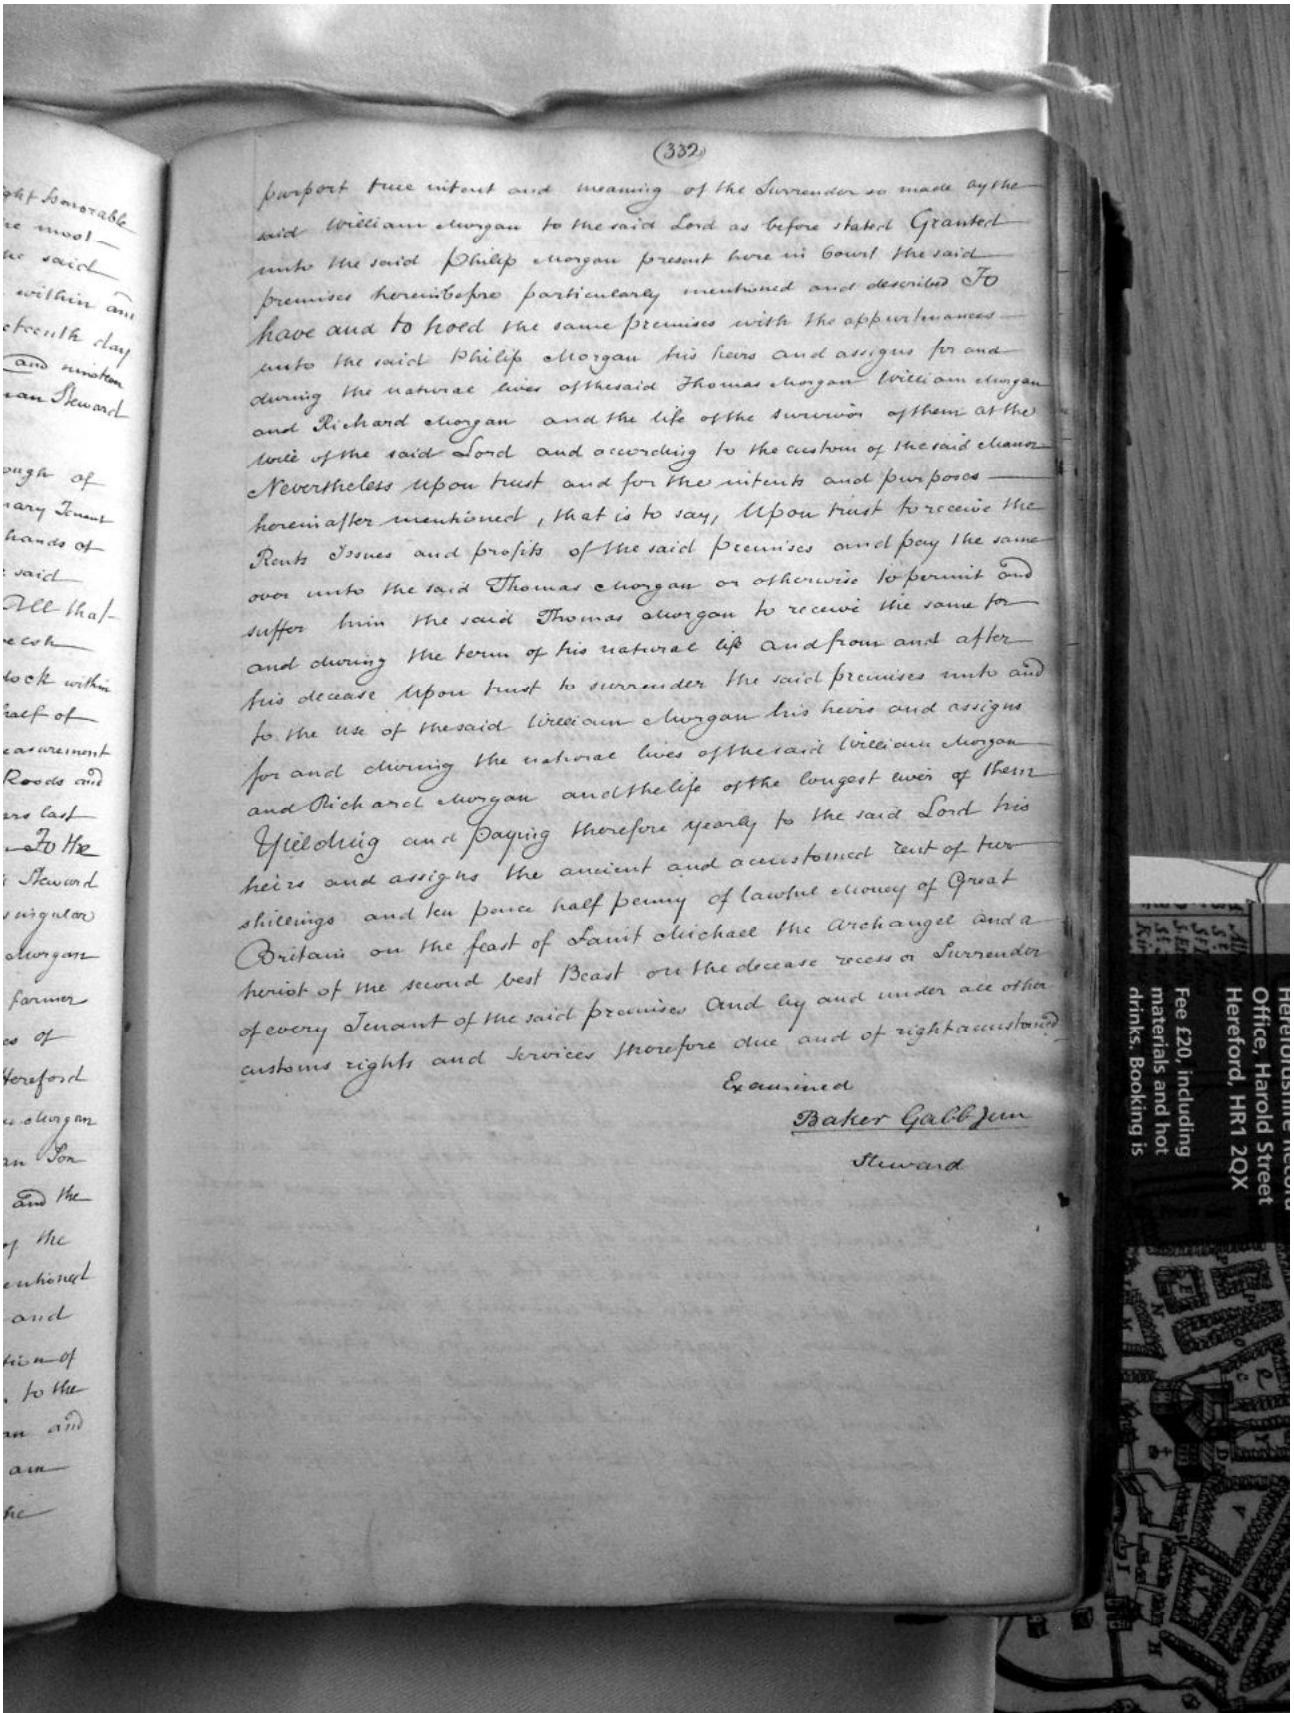 ght Honorable
he most
he said
within and
eteenth day
and nineteen
an Steward
ough of
nary Tenant
hands of
said
All that
dock within
half of
easurement
Roods and
last
To the
Steward
singular
Morgan
farmer
es of
Hereford
Morgan
an Son
and the
of the
entioned
and
tion of
to the
an and
am
he
(332)
purport true intent and meaning of the Surrender so made by the
said William Morgan to the said Lord as before stated Granted
unto the said Philip Morgan present here in Court the said
premises hereinbefore particularly mentioned and described To
have and to hold the same premises with the appurtenances
unto the said Philip Morgan his heirs and assigns for and
during the natural lives of the said Thomas Morgan William Morgan
and Richard Morgan and the life of the survivor of them at the
Will of the said Lord and according to the custom of the said Manor
Nevertheless Upon trust and for the intents and purposes
hereinafter mentioned, that is to say, Upon trust to receive the
Rents Issues and profits of the said premises and pay the same
over unto the said Thomas Morgan or otherwise to permit and
suffer him the said Thomas Morgan to receive the same for
and during the term of his natural life and from and after
his decease Upon trust to surrender the said premises unto and
to the use of the said William Morgan his heirs and assigns
for and during the natural lives of the said William Morgan
and Richard Morgan and the life of the longest liver of them
Yielding and paying therefore yearly to the said Lord his
heirs and assigns the ancient and accustomed rent of two
shillings and ten pence half penny of lawful Money of Great
Britain on the feast of Saint Michael the Archangel and a
heriot of the second best Beast on the decease recess or Surrender
of every Tenant of the said premises And by and under all other
customs rights and services therefore due and of right accustomed
Examined
Baker Gabb Jun
Steward
Herefordshire Record
Office, Harold Street
Hereford, HR1 2QX
Fee £20, including
materials and hot
drinks. Booking is